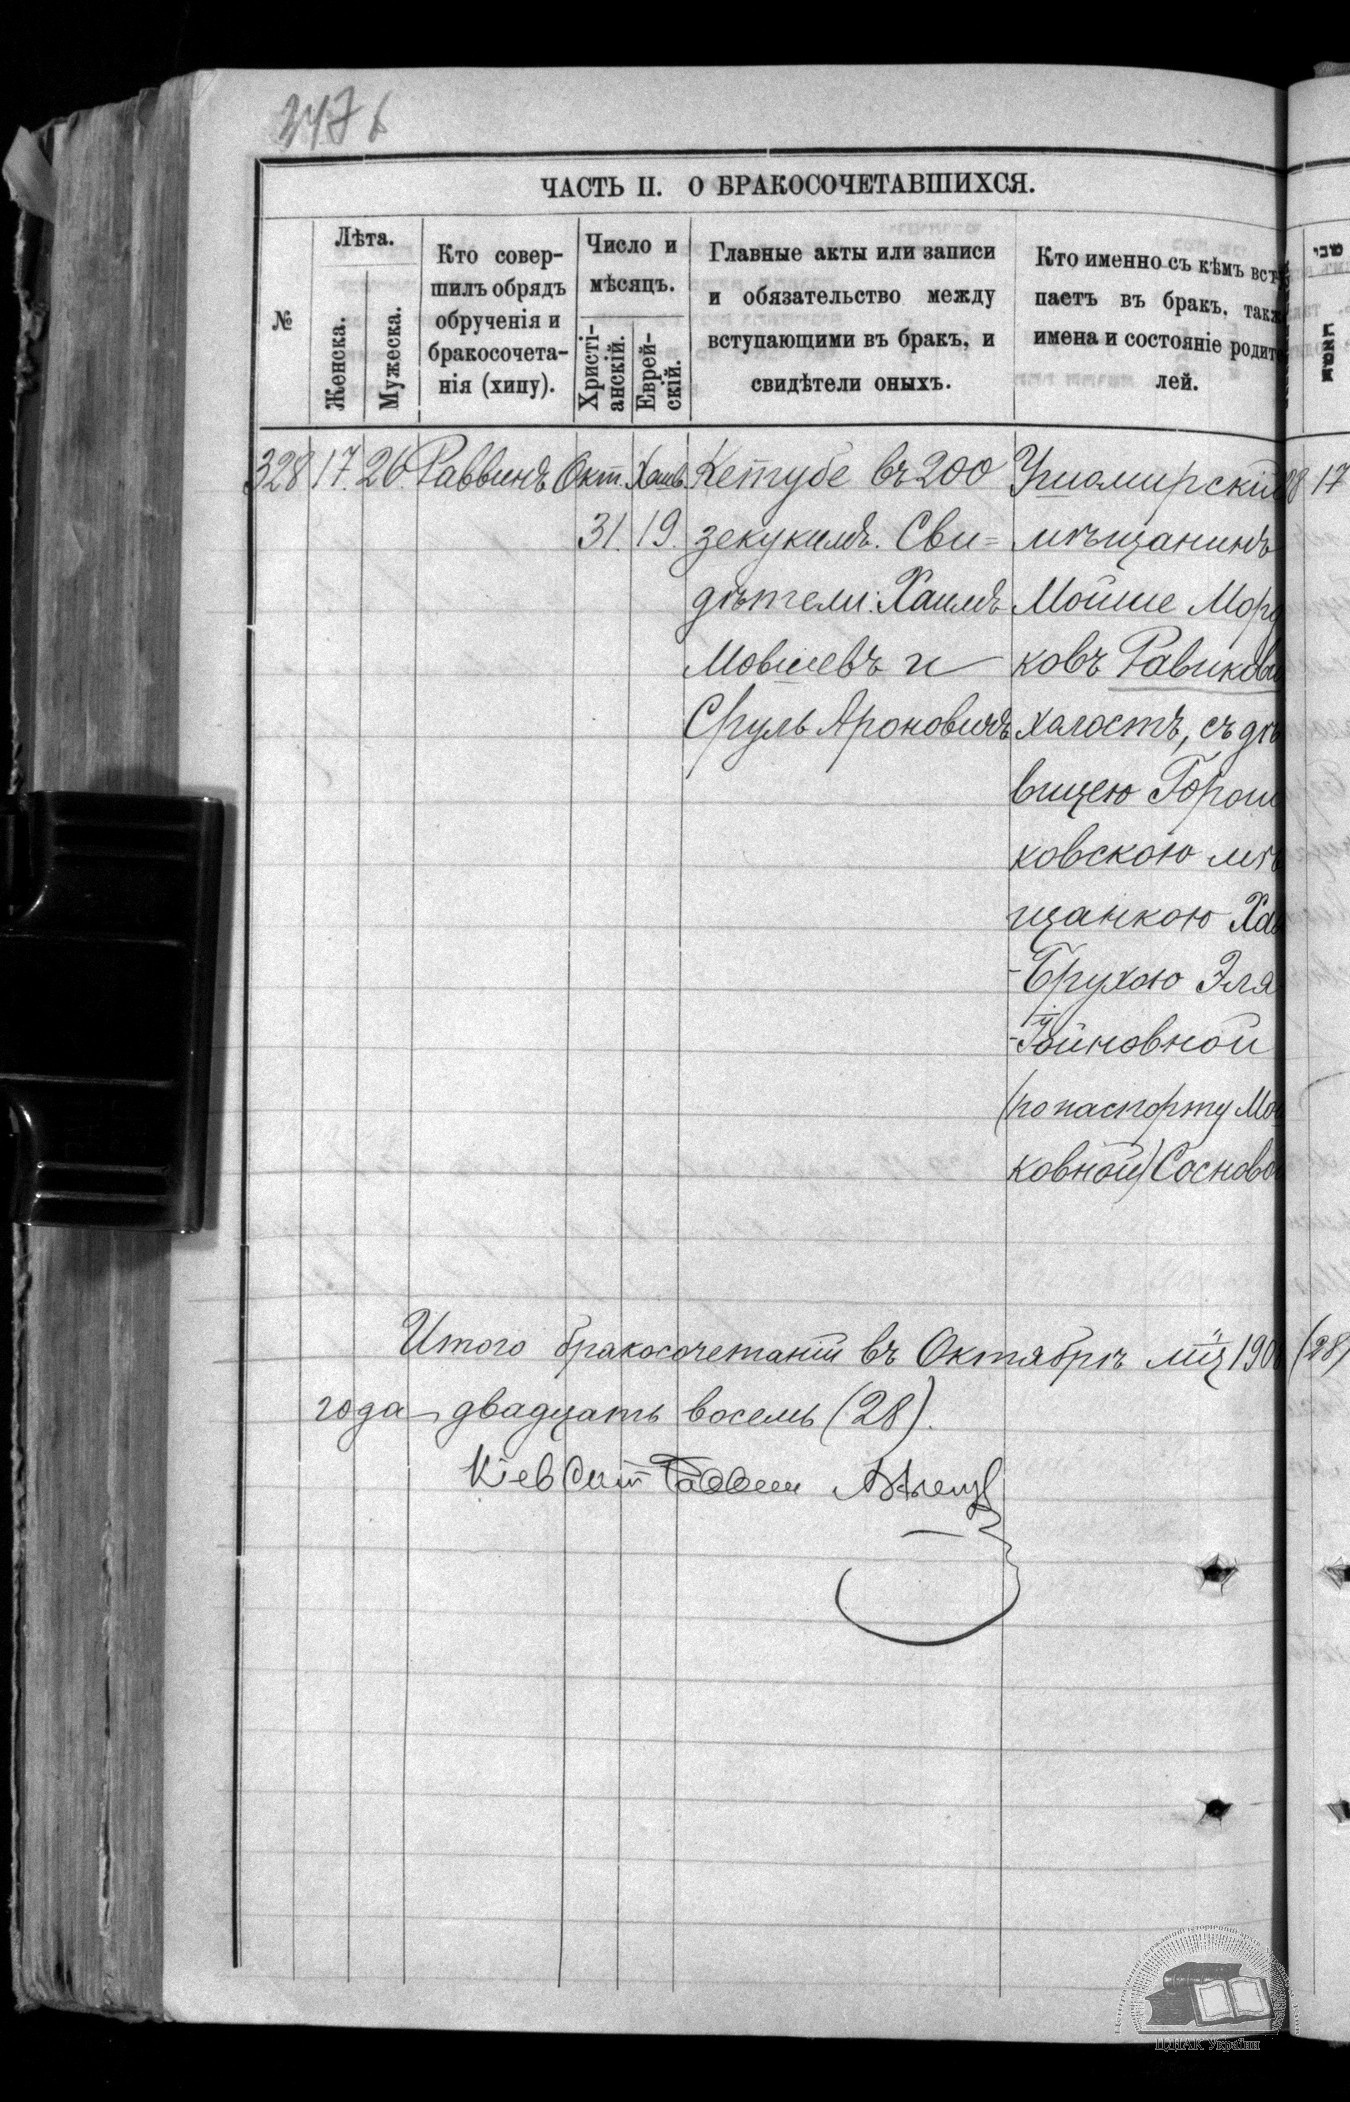 247 б
ЧАСТЬ II. О БРАКОСОЧЕТАВШИХСЯ.
№
Лѣта.
Женска.
Мужеска.
Кто совер-
шилъ обрядъ
обрученія и
бракосочета-
нія (хипу).
Число и
мѣсяцъ.
Христі-
анскій.
Еврей-
скій.
Главные акты или записи
и обязательство между
вступающими въ бракъ, и
свидѣтели оныхъ.
Кто именно съ кѣмъ всту
паетъ въ бракъ, такж
имена и состояніе родите
лей.
328 17. 26. Раввинъ Окт. Хешв. Кетубе въ 200 Ушомирскій
31. 19. зекукимъ. Сви= мѣщанинъ
дѣтели: Хаимъ Мойше Морд
Мовшевъ и ковъ Равикови
Сруль Ароновичъ холостъ, съ дѣ
вицею Горош
ковскою мѣ
щанкою Хая
-Брухою Эля
-Іойновной
(по паспорту Мош
ковной) Сосново
Итого бракосочетаній въ Октябрѣ м-цѣ 190
года двадцать восемь (28).
Кіев Раввин
שבי
28 17
(28)
ЦДІАК України